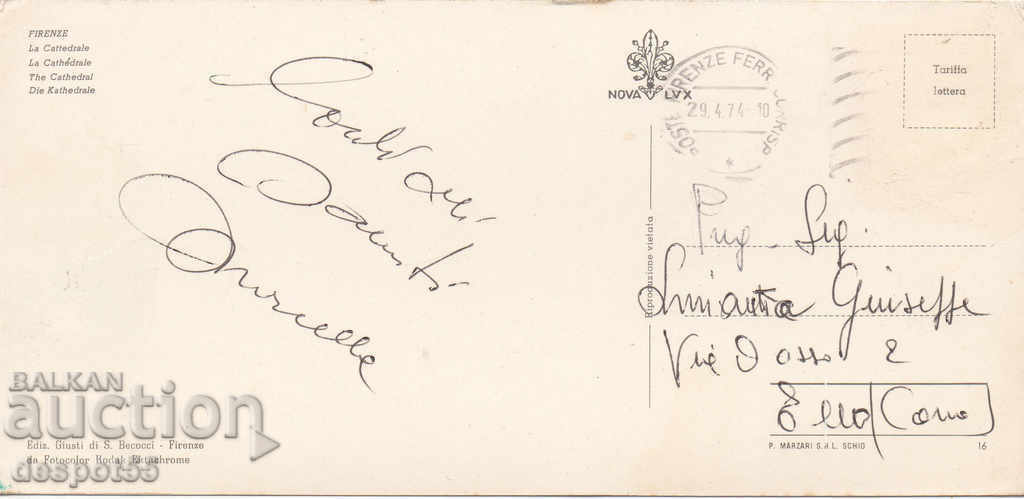 FIRENZE
La Cattedrale
La Cathédrale
The Cathedral
Die Kathedrale
NOVA LVX
POSTE FIRENZE FERR
29.4.74-10
Tariffa
lettera
Saluti
Marcella
Sig.
Giuseppe
Via Dosso 2
Ello (Como)
Riproduzione vietata
BALKAN
auction
despot55
Ediz. Giusti di S. Becocci - Firenze
da Fotocolor Kodak Ektachrome
P. MARZARI S.R.L. SCHIO
16